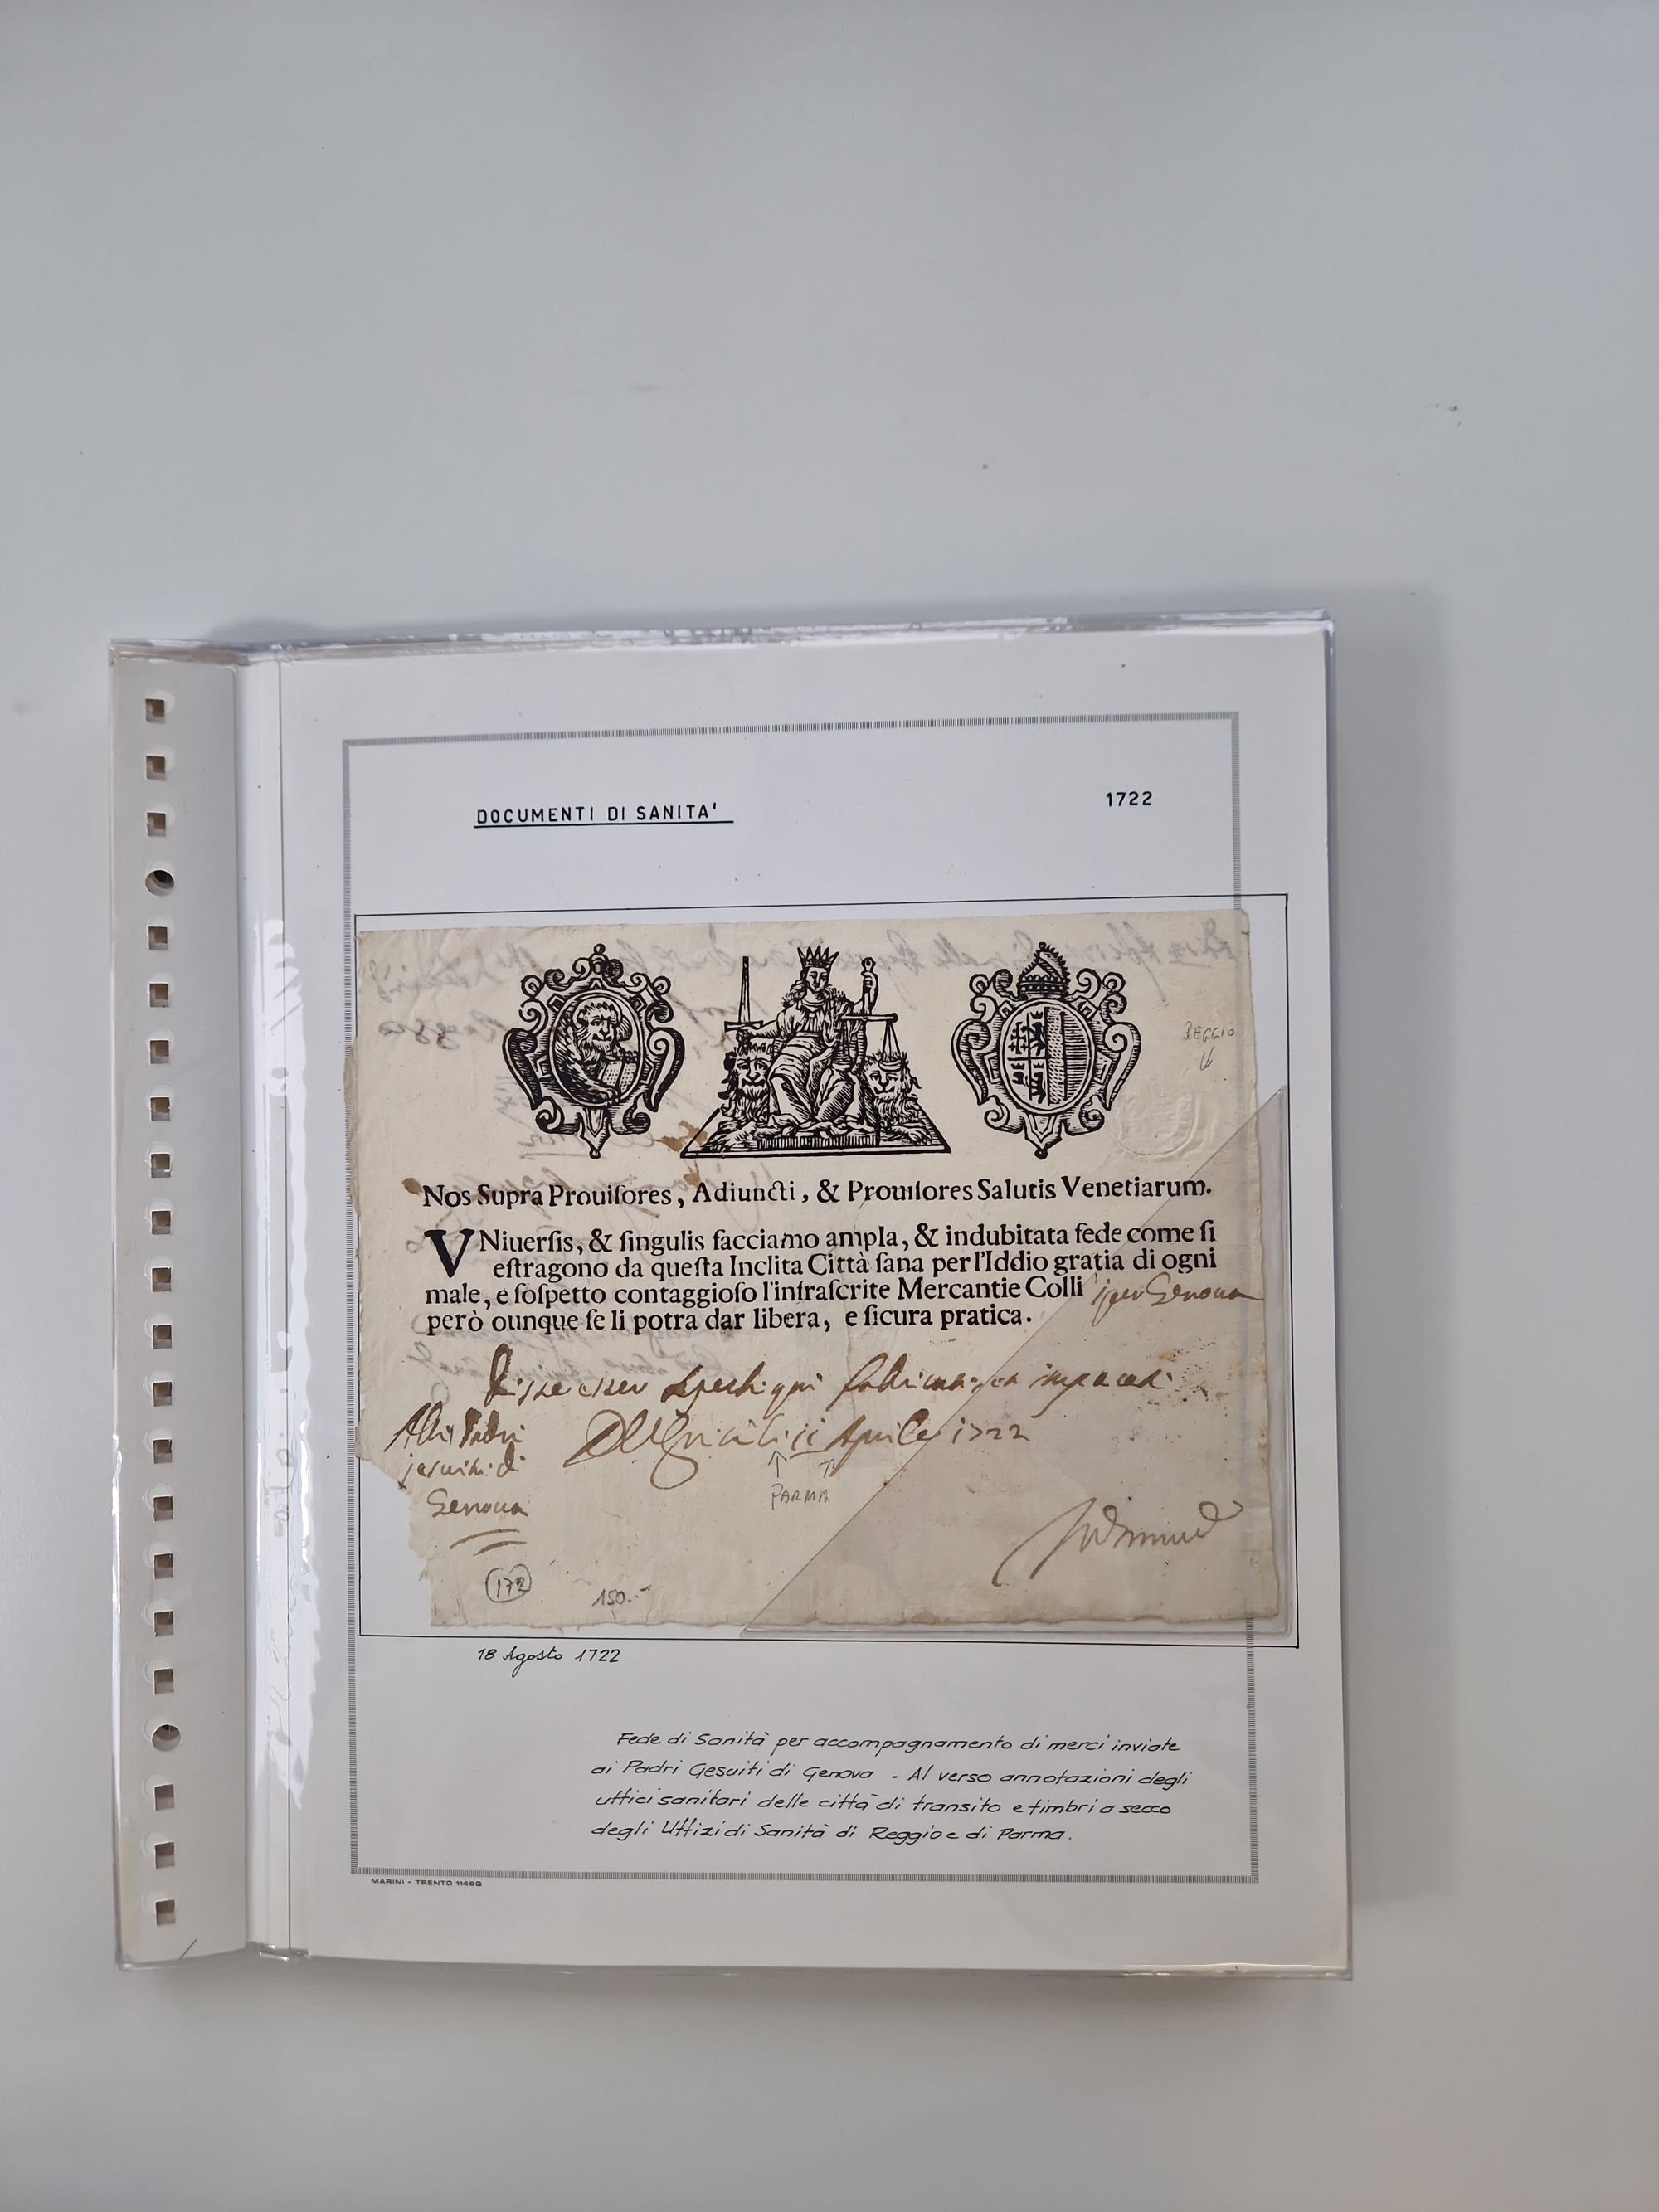 DOCUMENTI DI SANITA'
1722
REGGIO
Nos Supra Prouiſores, Adiuncti, & Prouiſores Salutis Venetiarum.
VNiuerſis, & ſingulis facciamo ampla, & indubitata fede come ſi
eſtragono da queſta Inclita Città ſana per l'Iddio gratia di ogni
male, e ſoſpetto contaggioſo l'infraſcrite Mercantie Colli 1 per Genoua
però ounque ſe li potra dar libera, e ſicura pratica.
esser Spechi qui
Alli Padri
11 Aprile 1722
jesuiti di
PARMA
Genoua
172
150.-
18 Agosto 1722
Fede di Sanità per accompagnamento di merci inviate
ai Padri Gesuiti di Genova - Al verso annotazioni degli
uffici sanitari delle città di transito e timbri a secco
degli Uffizi di Sanità di Reggio e di Parma.
MARINI - TRENTO 114BQ